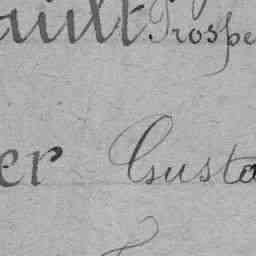 ault Prospe
er Gusta